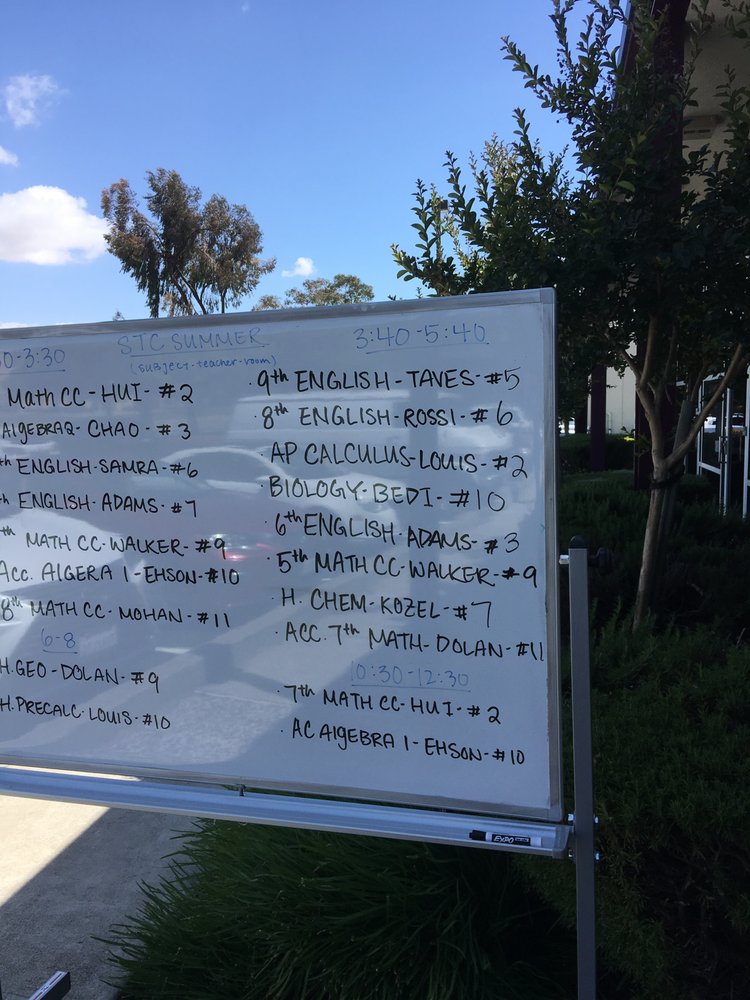 STC SUMMER
(subject-teacher-room)
0-3:30
Math CC-HUI-#2
AlGEBRA2-CHAO-#3
th ENGLISH-SAMRA-#6
h ENGLISH-ADAMS-#7
th MATH CC-WALKER-#9
Acc. AlGERA 1-EHSON-#10
8th MATH CC-MOHAN-#11
6-8
H.GEO-DOLAN-#9
H.PRECALC-LOUIS-#10
3:40-5:40
· 9th ENGLISH-TAVES-#5
· 8th ENGLISH-ROSSI-#6
· AP CALCULUS-LOUIS-#2
· BIOLOGY-BEDI-#10
· 6th ENGLISH-ADAMS-#3
· 5th MATH CC-WALKER-#9
· H. CHEM-KOZEL-#7
· ACC. 7th MATH-DOLAN-#11
10:30-12:30
· 7th MATH CC-HUI-#2
· AC AlgEBRA 1-EHSON-#10
EXPO